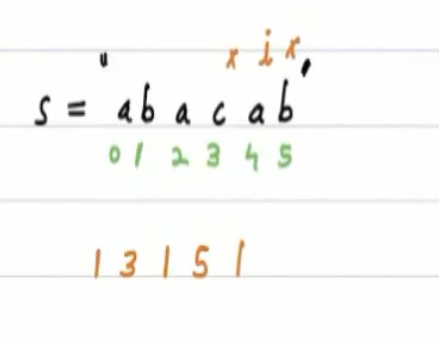 x i x
s = "abacab"
0 1 2 3 4 5
1 3 1 5 1